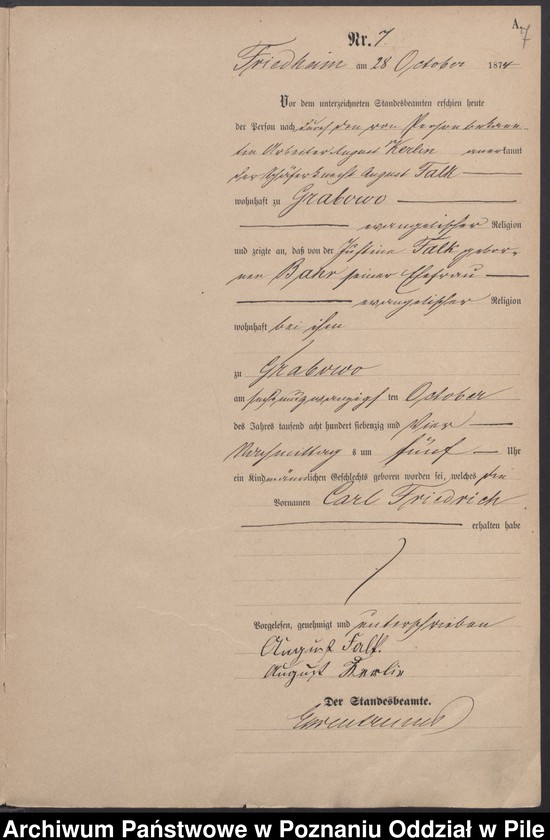 A.
7
Nr. 7.
Friedheim am 28 October 1874
Vor dem unterzeichneten Standesbeamten erschien heute
der Person nach durch den von Person bekann-
ten Arbeiter August Kerlin anerkannt
der Schäferknecht August Falk
wohnhaft zu Grabowo
evangelischer Religion
und zeigte an, daß von der Justine Falk gebor-
nen Bahr seiner Ehefrau
evangelischer Religion
wohnhaft bei ihm
zu Grabowo
am sechsundzwanzigsten October
des Jahres tausend acht hundert siebenzig und Vier
Nachmittags um fünf Uhr
ein Kind männlichen Geschlechts geboren worden sei, welches die
Vornamen Carl Friedrich
erhalten habe
Vorgelesen, genehmigt und unterschrieben
August Falk.
August Kerlin
Der Standesbeamte.
Archiwum Państwowe w Poznaniu Oddział w Pile